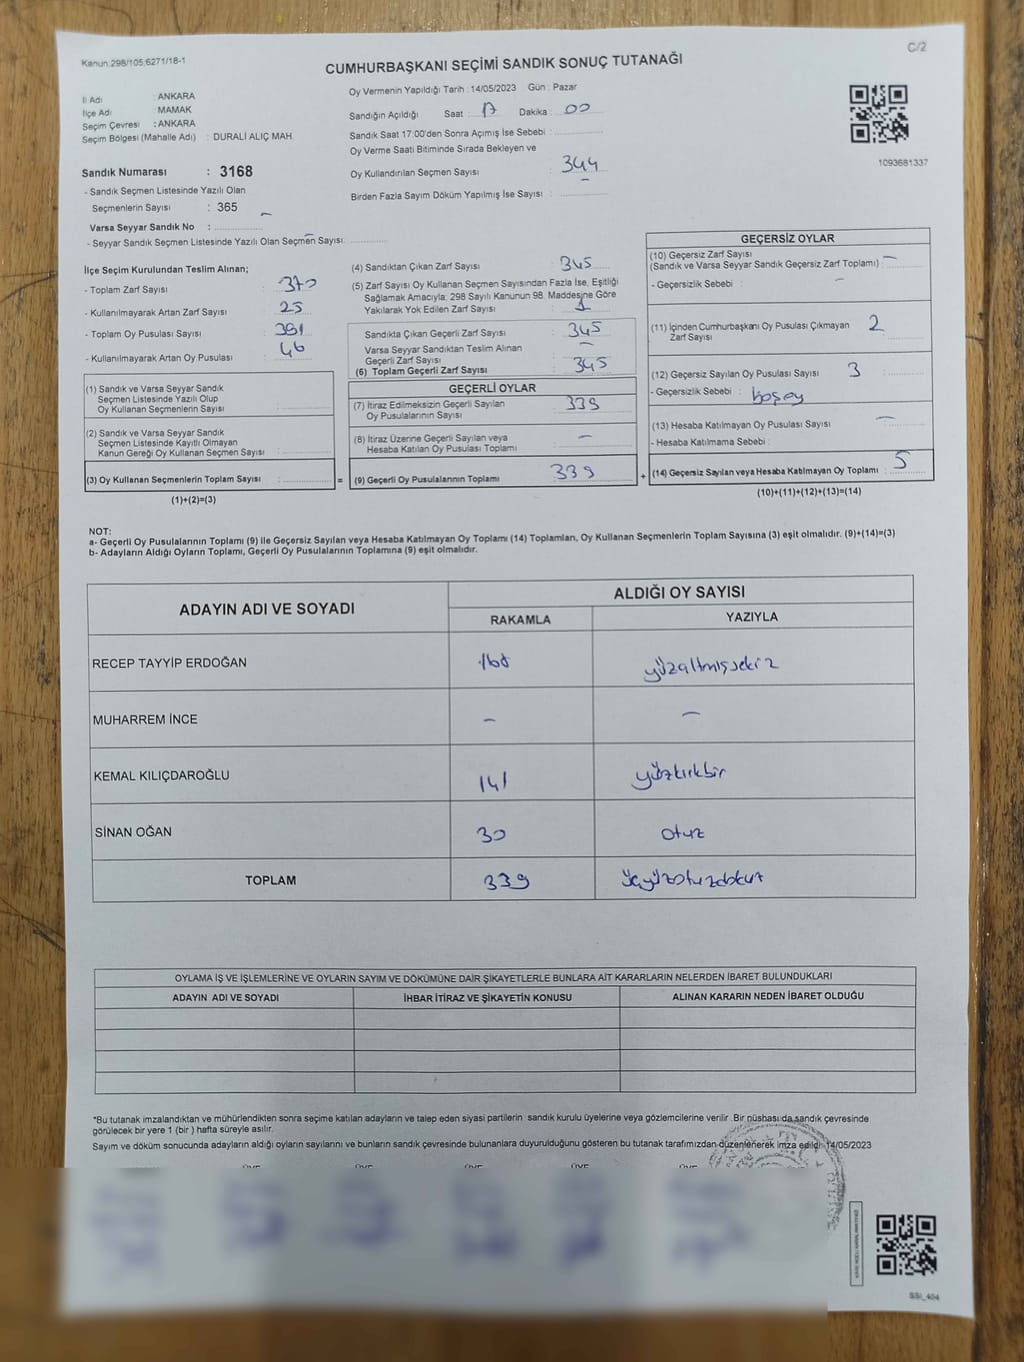 Kanun:298/105;6271/18-1
C/2
CUMHURBAŞKANI SEÇİMİ SANDIK SONUÇ TUTANAĞI
İl Adı : ANKARA
İlçe Adı : MAMAK
Seçim Çevresi : ANKARA
Seçim Bölgesi (Mahalle Adı) : DURALİ ALIÇ MAH.
Sandık Numarası : 3168
- Sandık Seçmen Listesinde Yazılı Olan
Seçmenlerin Sayısı : 365
Varsa Seyyar Sandık No : –
- Seyyar Sandık Seçmen Listesinde Yazılı Olan Seçmen Sayısı: –
Oy Vermenin Yapıldığı Tarih : 14/05/2023 Gün : Pazar
Sandığın Açıldığı Saat 17 Dakika : 00
Sandık Saat 17:00'den Sonra Açımış İse Sebebi :
Oy Verme Saati Bitiminde Sırada Bekleyen ve
Oy Kullandırılan Seçmen Sayısı : 344
Birden Fazla Sayım Döküm Yapılmış İse Sayısı : –
1093681337
İlçe Seçim Kurulundan Teslim Alınan;
- Toplam Zarf Sayısı : 370
- Kullanılmayarak Artan Zarf Sayısı : 25
- Toplam Oy Pusulası Sayısı : 391
- Kullanılmayarak Artan Oy Pusulası : 46
(1) Sandık ve Varsa Seyyar Sandık
Seçmen Listesinde Yazılı Olup
Oy Kullanan Seçmenlerin Sayısı :
(2) Sandık ve Varsa Seyyar Sandık
Seçmen Listesinde Kayıtlı Olmayan
Kanun Gereği Oy Kullanan Seçmen Sayısı :
(3) Oy Kullanan Seçmenlerin Toplam Sayısı :
(1)+(2)=(3)
=
(4) Sandıktan Çıkan Zarf Sayısı : 345
(5) Zarf Sayısı Oy Kullanan Seçmen Sayısından Fazla İse, Eşitliği
Sağlamak Amacıyla; 298 Sayılı Kanunun 98. Maddesine Göre
Yakılarak Yok Edilen Zarf Sayısı : 1
Sandıkta Çıkan Geçerli Zarf Sayısı : 345
Varsa Seyyar Sandıktan Teslim Alınan
Geçerli Zarf Sayısı : –
(6) Toplam Geçerli Zarf Sayısı : 345
GEÇERLİ OYLAR
(7) İtiraz Edilmeksizin Geçerli Sayılan
Oy Pusulalarının Sayısı : 339
(8) İtiraz Üzerine Geçerli Sayılan veya
Hesaba Katılan Oy Pusulası Toplamı : –
(9) Geçerli Oy Pusulalarının Toplamı : 339
+
GEÇERSİZ OYLAR
(10) Geçersiz Zarf Sayısı
(Sandık ve Varsa Seyyar Sandık Geçersiz Zarf Toplamı) : –
- Geçersizlik Sebebi : –
(11) İçinden Cumhurbaşkanı Oy Pusulası Çıkmayan
Zarf Sayısı : 2
(12) Geçersiz Sayılan Oy Pusulası Sayısı : 3
- Geçersizlik Sebebi : boş oy
(13) Hesaba Katılmayan Oy Pusulası Sayısı : –
- Hesaba Katılmama Sebebi :
(14) Geçersiz Sayılan veya Hesaba Katılmayan Oy Toplamı : 5
(10)+(11)+(12)+(13)=(14)
NOT:
a- Geçerli Oy Pusulalarının Toplamı (9) ile Geçersiz Sayılan veya Hesaba Katılmayan Oy Toplamı (14) Toplamları, Oy Kullanan Seçmenlerin Toplam Sayısına (3) eşit olmalıdır. (9)+(14)=(3)
b- Adayların Aldığı Oyların Toplamı, Geçerli Oy Pusulalarının Toplamına (9) eşit olmalıdır.
ADAYIN ADI VE SOYADI
ALDIĞI OY SAYISI
RAKAMLA YAZIYLA
RECEP TAYYİP ERDOĞAN 168 yüzaltmışsekiz
MUHARREM İNCE – –
KEMAL KILIÇDAROĞLU 141 yüzkırkbir
SİNAN OĞAN 30 otuz
TOPLAM 339 üçyüzotuzdokuz
OYLAMA İŞ VE İŞLEMLERİNE VE OYLARIN SAYIM VE DÖKÜMÜNE DAİR ŞİKAYETLERLE BUNLARA AİT KARARLARIN NELERDEN İBARET BULUNDUKLARI
ADAYIN ADI VE SOYADI İHBAR İTİRAZ VE ŞİKAYETİN KONUSU ALINAN KARARIN NEDEN İBARET OLDUĞU
*Bu tutanak imzalandıktan ve mühürlendikten sonra seçime katılan adayların ve talep eden siyasi partilerin sandık kurulu üyelerine veya gözlemcilerine verilir. Bir nüshası da sandık çevresinde
görülecek bir yere 1 (bir ) hafta süreyle asılır.
Sayım ve döküm sonucunda adayların aldığı oyların sayılarını ve bunların sandık çevresinde bulunanlara duyurulduğunu gösteren bu tutanak tarafımızdan düzenlenerek imza edildi. 14/05/2023
SSİ_404